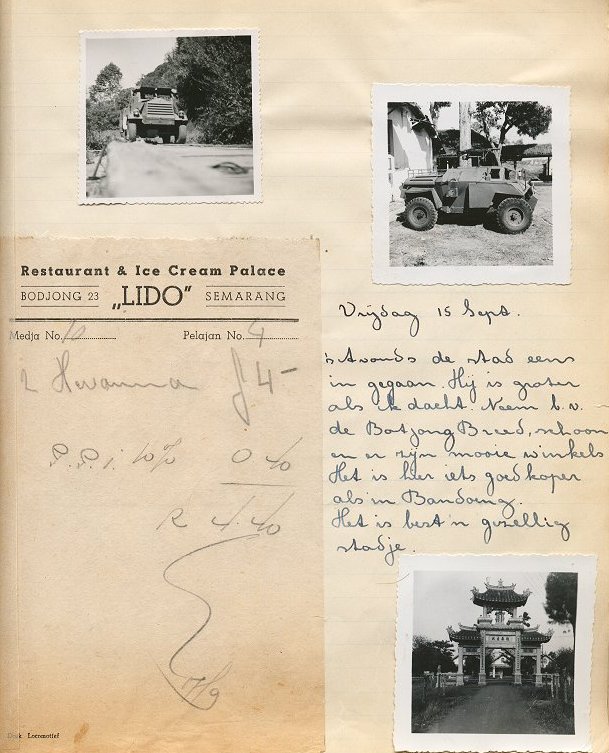 Restaurant & Ice Cream Palace
BODJONG 23 „LIDO” SEMARANG
Medja No. 10 Pelajan No. 4
2 Havanna f 4-
P.P.1. 10% 0 40
R 4.40
Druk Locomotief
Vrijdag 15 Sept.
's Avonds de stad eens
in gegaan. Hij is groter
als ik dacht. Neem b.v.
de Botjong Breed, schoon
en er zijn mooie winkels
Het is hier iets goedkoper
als in Bandoeng.
Het is best 'n gezellig
stadje.